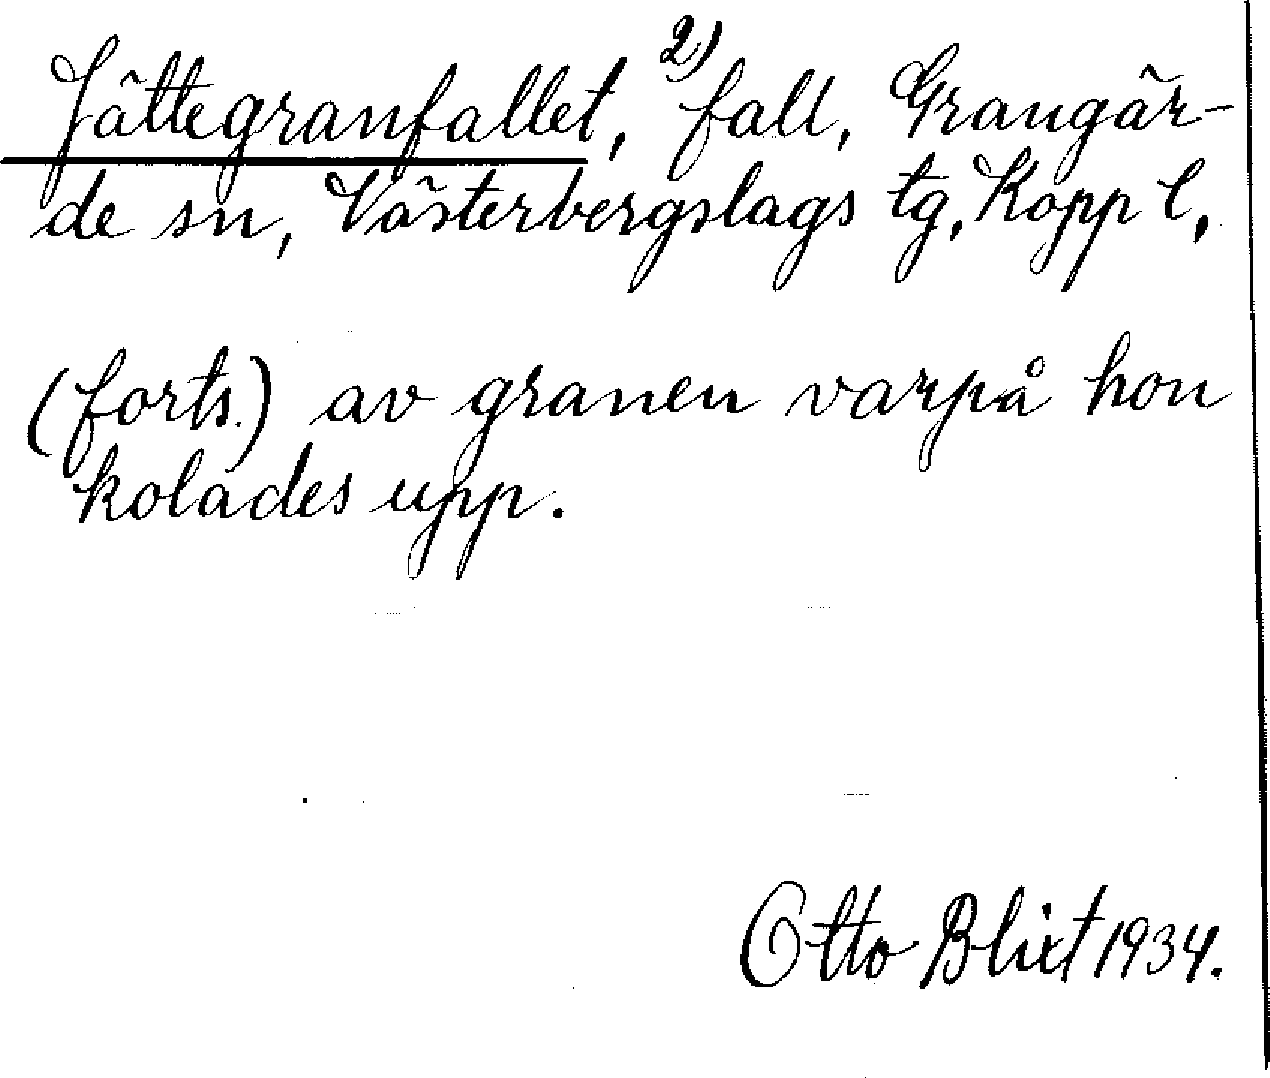 Jättegranfallet, 2) fall, Grangär-
de sn, Västerbergslags tg, Kopp l,
(forts.) av granen varpå hon
kolades upp.
Otto Blixt 1934.